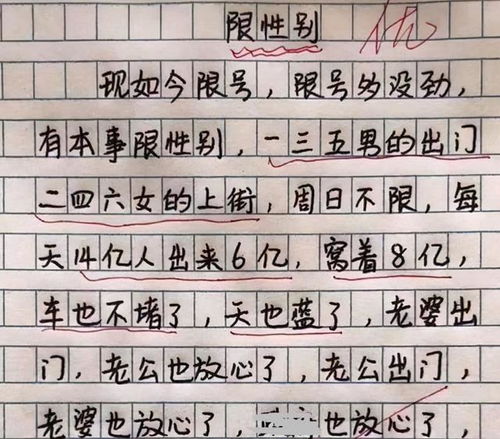 限性别
优
现如今限号，限号多没劲，
有本事限性别，一三五男的出门
二四六女的上街，周日不限，每
天14亿人出来6亿，窝着8亿，
车也不堵了，天也蓝了，老婆出
门，老公也放心了，老公出门，
老婆也放心了，也放心了，